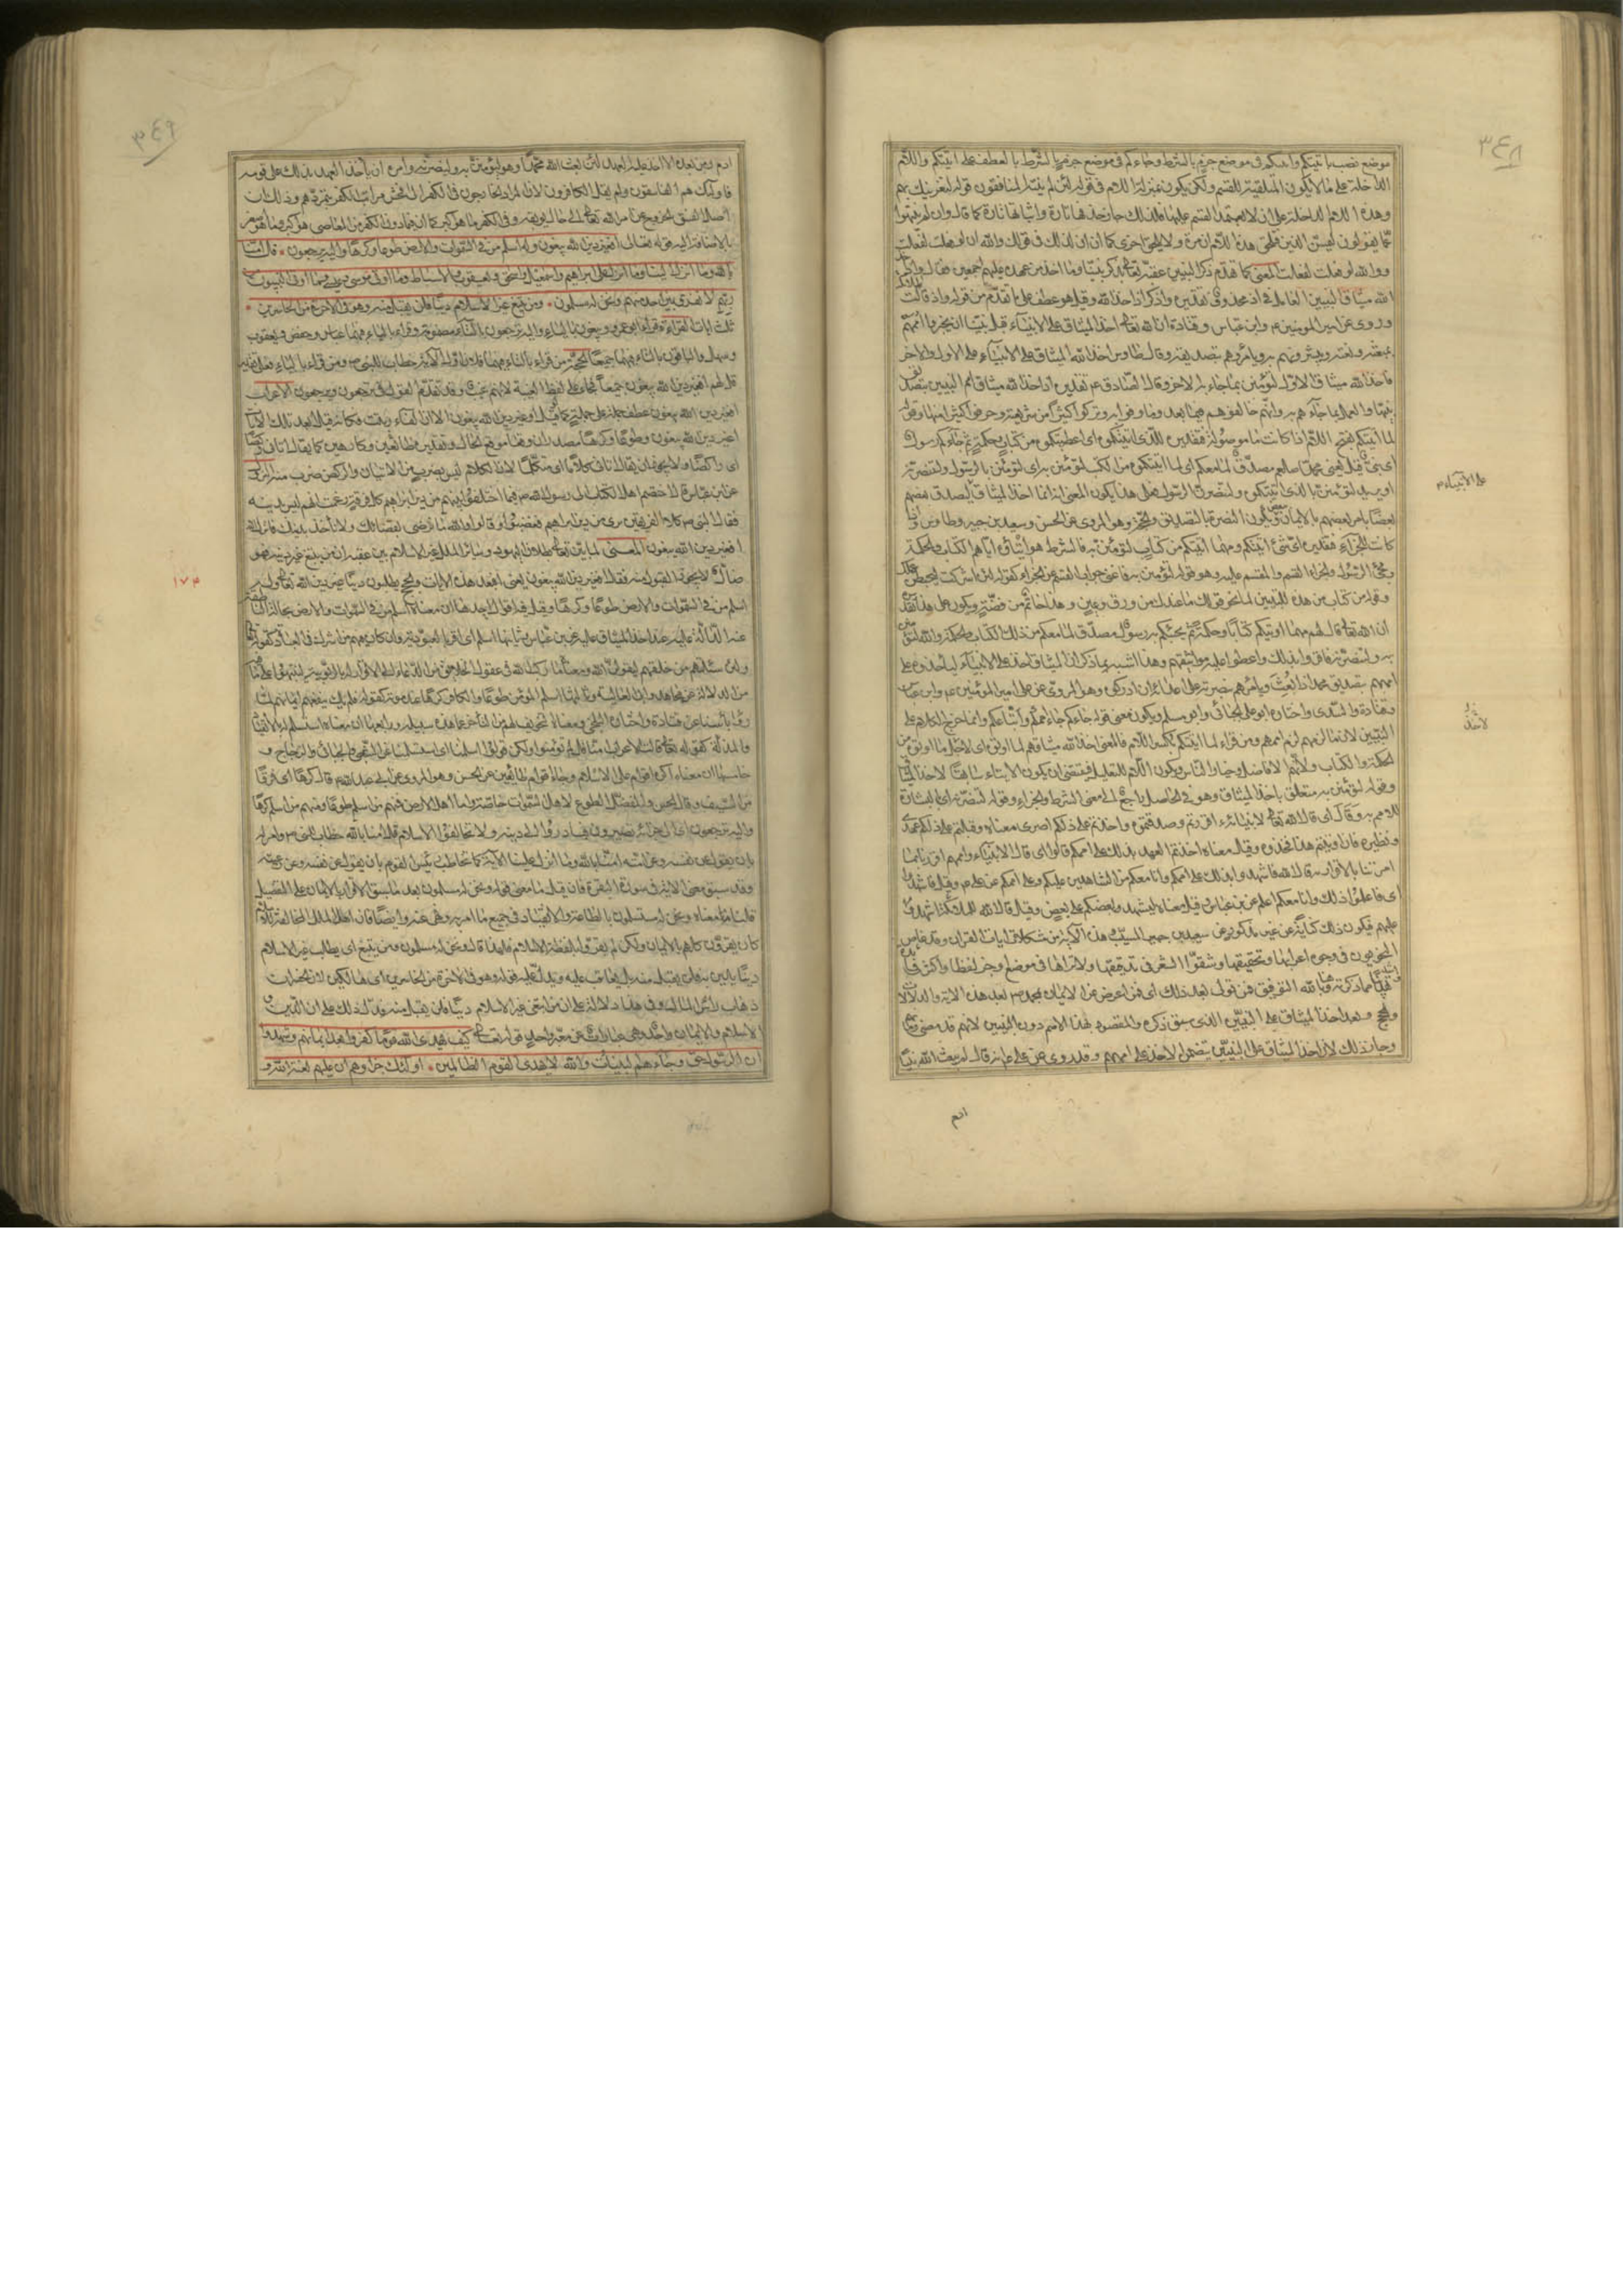 ٣٤٨
موضع نصب باتيتكم واتيتكم في موضع جزم بالشرط وجاءكم في موضع جزم بالشرط بالعطف على اتيتكم واللام
الداخلة على ما لا يكون المتلقية للقسم ولكن يكون بمنزلة اللام في قوله لئن لم ينته المنافقون قوله لنغرينك بهم
وهذه اللام الداخلة على ان لا يعتمد القسم عليها فلذلك جاز حذفها تارة واثباتها تارة كما قال وان لم ينتهوا
عما يقولون ليمسن الذين فتلحق هذه اللام ان مرة ولا يلحق اخرى كما ان ان كذلك في قولك والله ان لو فعلت لفعلت
ووالله لو فعلت لفعلت المعنى كما تقدم ذكر النبيين عقبه تعالى بذكر نبينا وما اخذ من عهده عليهم اجمعين فقال واذ اخذ
الله ميثاق النبيين العامل في اذ محذوف تقديره واذكر اذ اخذ الله وقيل هو عطف على ما تقدم من قوله واذ قالت الملائكة
وروى عن امير المومنين ع وابن عباس وقتادة ان الله تعالى اخذ الميثاق على الانبياء قبل نبينا ان يخبروا اممهم
بمبعثه ونعته ويبشروهم به ويامروهم بتصديقه وقال طاوس اخذ الله الميثاق على الانبياء على الاول والاخر
فاخذ الله ميثاق الاول لتؤمنن بما جاء به الاخر وقال الصادق ع تقديره واذ اخذ الله ميثاق امم النبيين بتصديق
نبيها والعمل بما جاءهم به وانهم خالفوهم فيما بعد وما وفوا به وتركوا كثيرا من شريعته وحرفوا كثيرا منها وقوله
لما اتيتكم بفتح اللام اذا كانت ما موصولة فتقديره للذي اتيتكموه اى اعطيتكموه من كتاب وحكمة ثم جاءكم رسول
اى نبى قيل يعنى محمدا صلعم مصدق لما معكم اى لما اتيتكموه من الكتب لتؤمنن به اى لتؤمنن بالرسول ولتنصرنه
او يريد لتؤمنن بالذى اتيتكموه ولتنصرن الرسول فعلى هذا يكون المعنى انه انما اخذ الميثاق ليصدق بعضهم
بعضا يامر بعضهم بالايمان ببعض ويكون النصرة بالتصديق والحجة وهو المروى عن الحسن وسعيد بن جبير وطاوس واذا
كانت للجزاء فتقديره اى شئ اتيتكم ومهما اتيتكم من كتاب لتؤمنن به فالشرط هو ايتاؤه اياهم الكتاب والحكمة
ومجئ الرسول والجزاء القسم والمقسم عليه وهو قوله لتؤمنن به فاغنى جواب القسم عن الجزاء كقوله لئن اشركت ليحبطن عملك
وقوله من كتاب من هذه للتبيين لما نحو قولك ما عندك من ورق وعين وهذا خاتم من فضة ويكون على هذا تقديره
ان الله تعالى قال لهم مهما اوتيكم كتابا وحكمة ثم يجئكم به رسول مصدق لما معكم من ذلك الكتاب والحكمة والله لتؤمنن
به ولتنصرنه فاقروا بذلك واعطوا عليه مواثيقهم وهذا اشبه بما ذكر ان الميثاق اخذ على الانبياء ليأخذوه على
اممهم بتصديق محمد اذا بعث ويامرهم بنصرته على اعدائه ان ادركوه وهو المروى عن على امير المؤمنين ع وابن عباس
وقتادة والسدى واختاره ابو على الجبائى وابو مسلم ويكون معنى قوله جاءكم جاء اممكم واتباعكم وانما خرج الكلام على
النبيين لان ما لزمهم لزم اممهم ومن قراء لما اتيتكم بكسر اللام فالمعنى اخذ الله ميثاقهم لما اوتوه اى لاجل ما اوتوه من
الحكمة والكتاب ولانهم الافاضل وخيار الناس ويكون اللام للتعليل فيقتضى ان يكون الايتاء سابقا لاخذ الميثاق
وقوله لتؤمنن به متعلق باخذ الميثاق وهو في الحاصل راجع الى معنى الشرط والجزاء وقوله لتنصرنه اى البشارة
للامم به وقال اى قال الله تعالى لانبيائه ءاقررتم وصدقتموه واخذتم على ذلكم اصرى معناه وقبلتم على ذلكم عهدى
ونظيره فان اوتيتم هذا فخذوه وقيل معناه اخذتم العهد بذلك على اممكم قالوا اى قال الانبياء واممهم اقررنا بما
امرتنا بالاقرار به قال الله فاشهدوا بذلك على اممكم وانا معكم من الشاهدين عليكم وعلى اممكم عن على ع وقيل فاشهدوا
اى فاعلموا ذلك وانا معكم اعلم عن ابن عباس وقيل معناه ليشهد بعضكم على بعض وقيل قال الله للملائكة اشهدوا
عليهم فيكون ذلك كناية عن غير مذكور عن سعيد بن المسيب وهذه الآية من مشكلات ايات القرآن وقد غاص
النحويون في وجوه اعرابها وتحقيقها وشقوا الشعر في تدقيقها ولا تراها في موضع اوجز لفظا واكثر فائدة
واتم تهذيبا مما ذكرته هنا وبالله التوفيق فمن تولى بعد ذلك اى فمن اعرض عن الايمان بمحمد ص بعد هذه الآية والدلالات
والحجج وبعد اخذ الميثاق على النبيين الذى سبق ذكره والمقصود بهذا الامم دون النبيين لانهم قد مضوا
وجاز ذلك لان اخذ الميثاق على النبيين يتضمن الاخذ على اممهم وقد روى عن على ع انه قال لم يبعث الله نبيا
على الانبياء ع
لاخذ
ادم
٣٤٩
ادم ومن بعده الا اخذ عليه العهد لئن بعث الله محمدا وهو حى ليؤمنن به ولينصرنه وامره ان يأخذ العهد بذلك على قومه
فاولئك هم الفاسقون ولم يقل الكافرون لان المراد الخارجون في الكفر الى افحش مراتب الكفر بتمردهم وذلك ان
اصل الفسق الخروج عن امر الله تعالى الى حال يوبقه وفي الكفر ما هو اكبر كما ان فيما دون الكفر من المعاصى ما هو كبير وما هو صغير
بالاضافة اليه قوله تعالى افغير دين الله يبغون وله اسلم من في السموات والارض طوعا وكرها واليه يرجعون ٭ قل امنا
بالله وما انزل علينا وما انزل على ابراهيم واسمعيل واسحق ويعقوب والاسباط وما اوتى موسى وعيسى والنبيون من
ربهم لا نفرق بين احد منهم ونحن له مسلمون ٭ ومن يبتغ غير الاسلام دينا فلن يقبل منه وهو في الآخرة من الخاسرين ٭
ثلث ايات القراءة قراء ابو عمرو يبغون بالياء واليه ترجعون بالتاء مضمومة وقراء بالياء فيهما عباس وحفص ويعقوب
وسهل والباقون بالتاء فيهما جميعا الحجة من قراء بالتاء فيهما فلان اول الآية خطاب للنبى ص ومن قراء بالياء فعلى تقدير
قل لهم افغير دين الله يبغون جميعا فجاء على لفظ الغيبة لانهم غيب وقد تقدم القول في ترجعون ويرجعون الاعراب
افغير دين الله يبغون عطف جملة على جملة كما قبل او غير دين الله يبغون الا ان الفاء رتبت فكانه قيل ابعد تلك الآيات
غير دين الله يبغون وطوعا وكرها مصدران وقعا موقع الحال وتقديره طائعين وكارهين كما يقال اتانى ركضا
اى راكضا ولا يجوز ان يقال اتانى كلاما اى متكلما لان الكلام ليس بضرب من الاتيان والركض ضرب منه النزول
عن ابن عباس قال اختصم اهل الكتاب الى رسول الله ص فيما اختلفوا بينهم من دين ابراهيم كل فرقة زعمت انهم اولى بدينه
فقال النبى ص كلا الفريقين برئ من دين ابراهيم فغضبوا وقالوا والله ما نرضى بقضائك ولا نأخذ بدينك فانزل الله
افغير دين الله يبغون المعنى لما بين تعالى بطلان اليهودية وسائر الملل غير الاسلام بين عقبه ان من يبتغ غير دينه فهو
ضال لا يجوز القبول منه فقال افغير دين الله يبغون يعنى افبعد هذه الآيات والحجج يطلبون دينا غير دين الله تعالى وله
اسلم من في السموات والارض طوعا وكرها وقيل فيه اقوال احدها ان معناه اسلم من في السموات والارض بحاله الناطقة
عنه الدالة عليه عند اخذ الميثاق عليه عن ابن عباس وثانيها اسلم اى اقر بالعبودية وان كان فيهم من اشرك في العبادة كقوله
ولئن سئلتهم من خلقهم ليقولن الله ومعناه ما ركب الله في عقول الخلائق من الدعاء الى الاقرار بالربوبية ليتنبهوا على ما فيه
من الدلالة عن مجاهد وابى العالية وثالثها اسلم المؤمن طوعا والكافر كرها عند موته كقوله فلم يك ينفعهم ايمانهم لما
رأوا بأسنا عن قتادة واختاره البلخى ومعناه التخويف لهم من التأخر عما هذه سبيله ورابعها ان معناه استسلم له بالانقياد
والمذلة كقوله تعالى قالت الاعراب امنا قل لم تؤمنوا ولكن قولوا اسلمنا اى استسلمنا عن الشعبى والجبائى والزجاج و
خامسها ان معناه اكره اقوام على الاسلام وجاء اقوام طائعين عن الحسن وهو المروى عن ابى عبد الله ع قال كرها اى فرقا
من السيف وقال الحسن والمفضل الطوع لاهل السموات خاصة واما اهل الارض فمنهم من اسلم طوعا ومنهم من اسلم كرها
واليه ترجعون اى الى جزائه تصيرون فبادروا الى دينه ولا تخالفوا الاسلام قل امنا بالله خطاب للنبى ص وامر له
بان يقول عن نفسه وعن امته امنا بالله وما انزل علينا الآية كما يخاطب رئيس القوم بان يقول عن نفسه وعن رعيته
وقد سبق معنى الآية في سورة البقرة فان قيل ما معنى قوله ونحن له مسلمون بعد ما سبق الاقرار بالايمان على التفصيل
قلنا معناه ونحن له مستسلمون بالطاعة والانقياد في جميع ما امر به ونهى عنه وايضا فان اهل الملل المخالفة للاسلام
كانوا يقرون كلهم بالايمان ولكن لم يقروا بلفظة الاسلام فلهذا قال ونحن له مسلمون ومن يبتغ اى يطلب غير الاسلام
دينا يدين به فلن يقبل منه بل يعاقب عليه ويدل عليه قوله وهو في الآخرة من الخاسرين اى الهالكين لان الخسران
ذهاب رأس المال وفي هذا دلالة على ان من ابتغى غير الاسلام دينا فلن يقبل منه فدل ذلك على ان الدين و
الاسلام والايمان واحد وهى عبارات عن معبر واحد قوله تعالى كيف يهدى الله قوما كفروا بعد ايمانهم وشهدوا
ان الرسول حق وجاءهم البينات والله لا يهدى القوم الظالمين ٭ اولئك جزاؤهم ان عليهم لعنة الله و
١٧٤